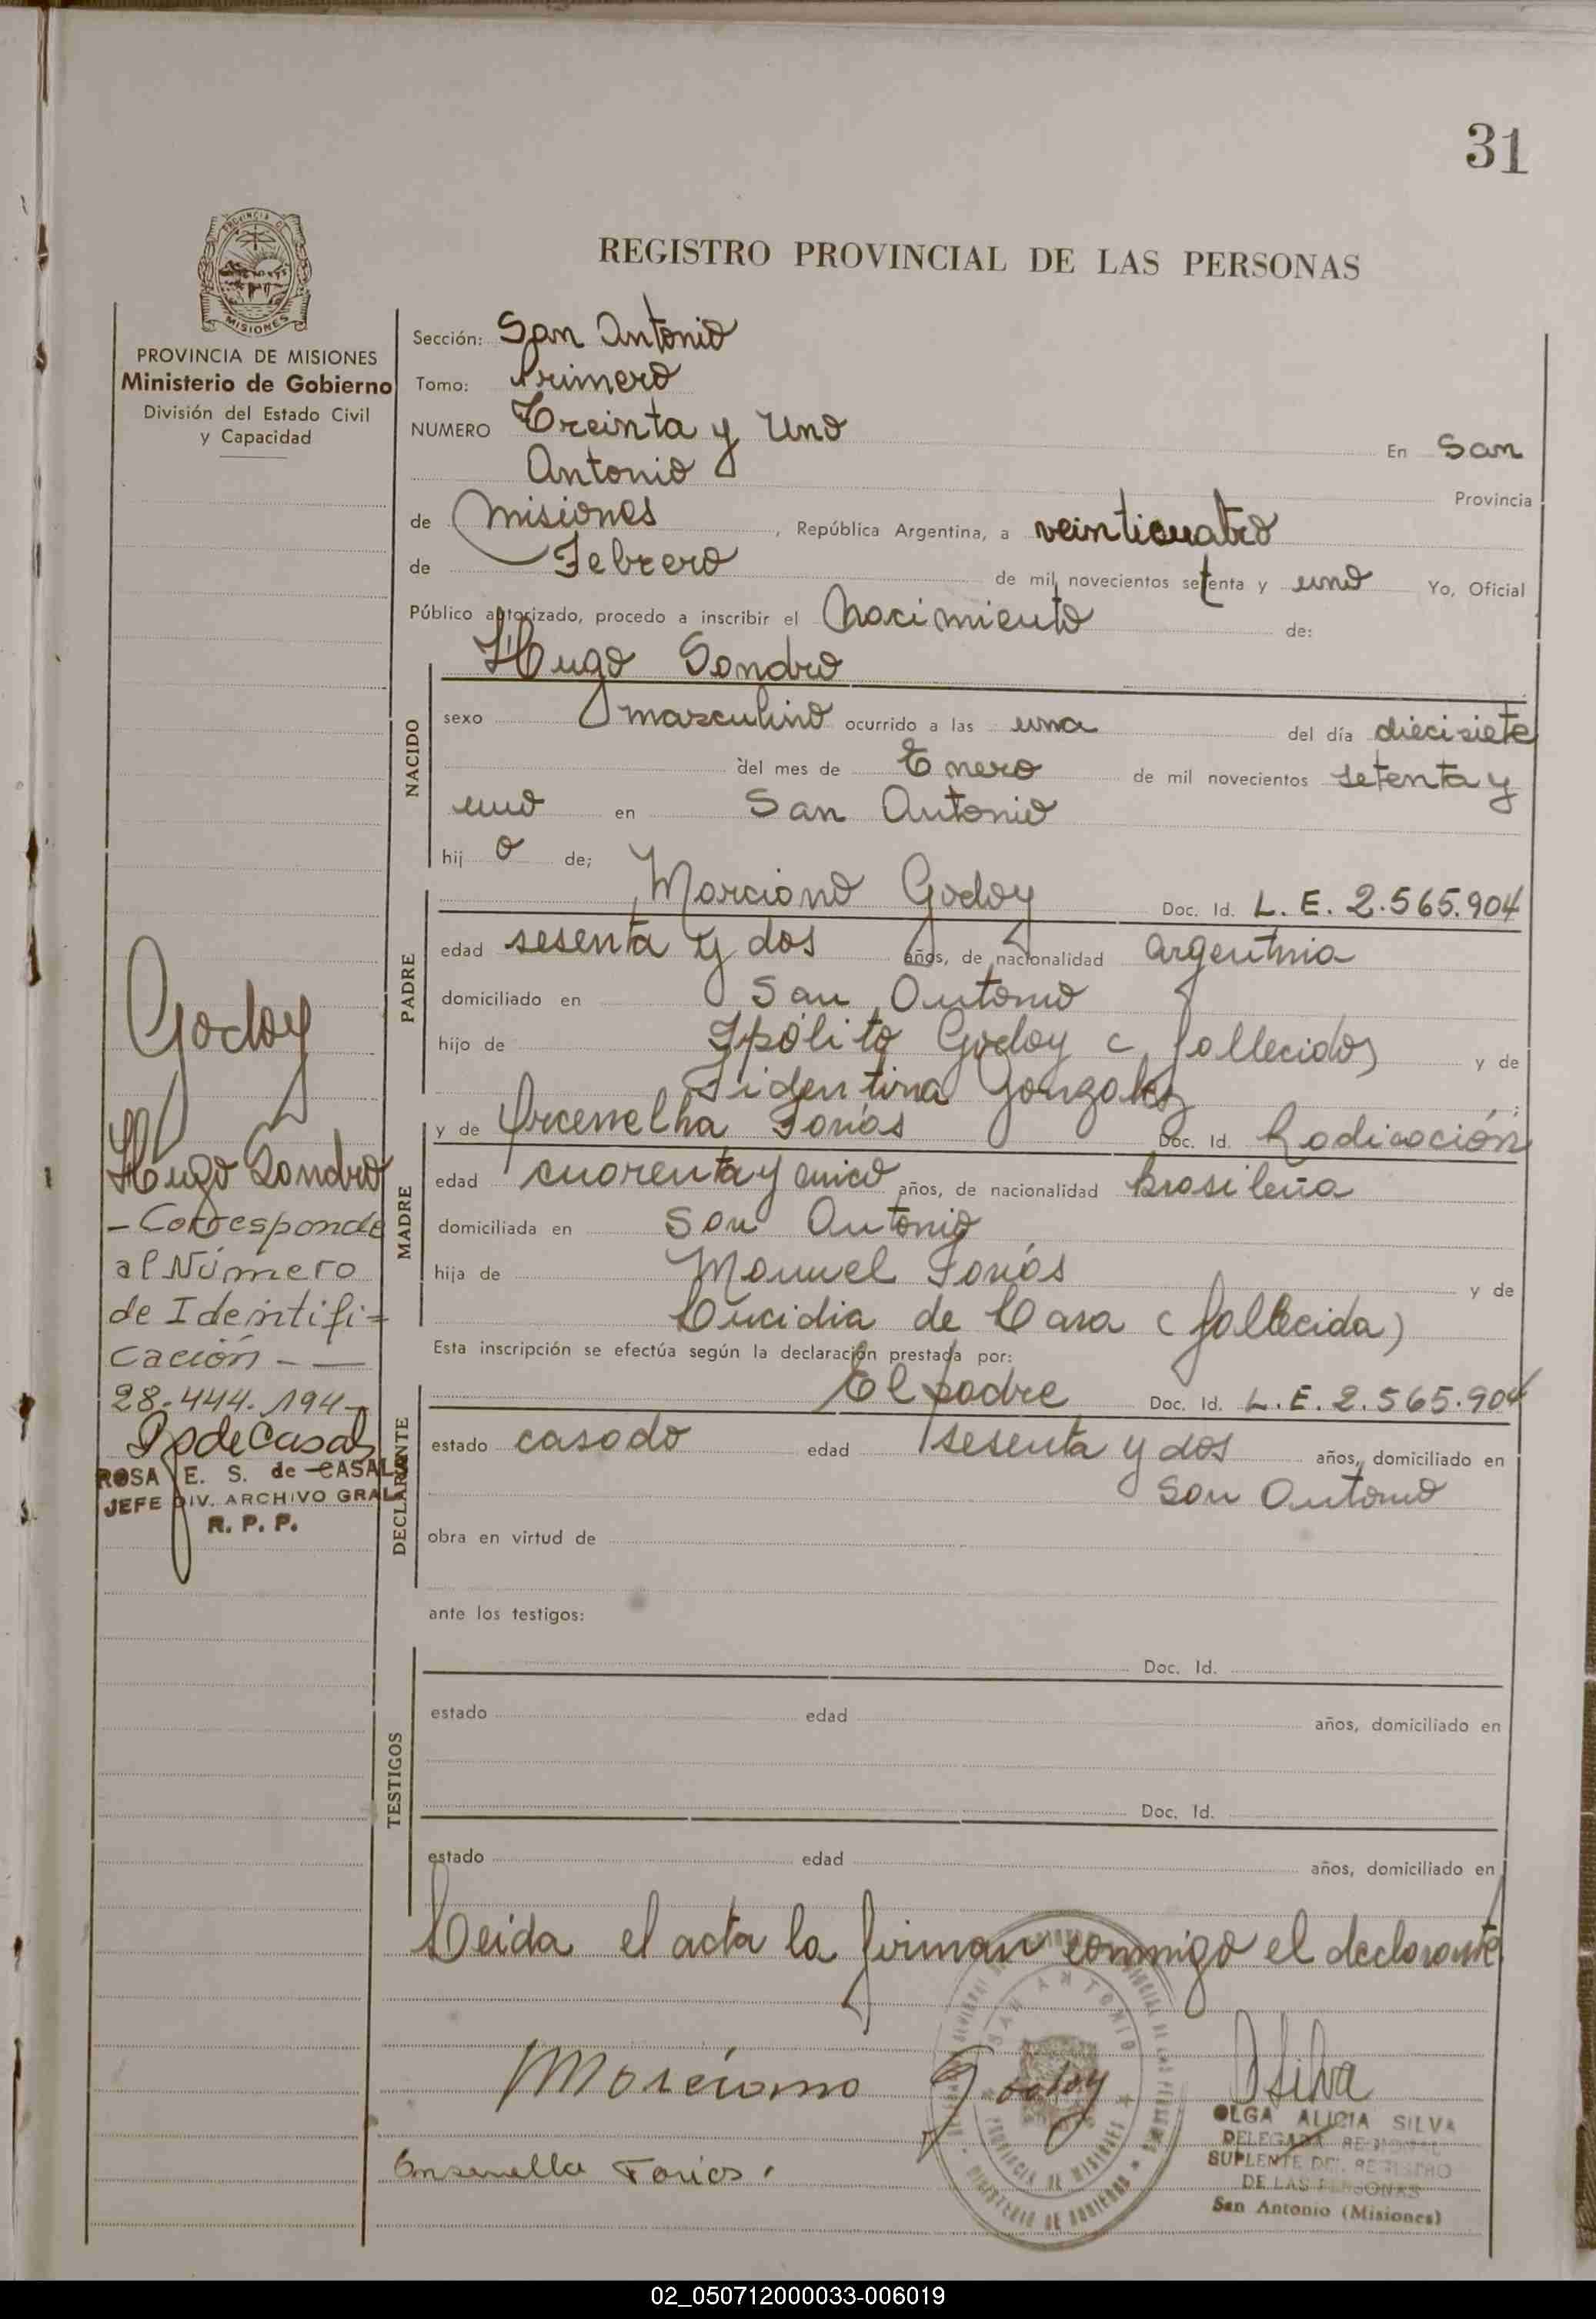 31
PROVINCIA DE
MISIONES
PROVINCIA DE MISIONES
Ministerio de Gobierno
División del Estado Civil
y Capacidad
REGISTRO PROVINCIAL DE LAS PERSONAS
Sección: San Antonio
Tomo: Primero
NUMERO Treinta y Uno En San
Antonio Provincia
de Misiones, República Argentina, a veinticuatro
de Febrero de mil novecientos setenta y uno Yo, Oficial
Público autorizado, procedo a inscribir el Nacimiento de:
Hugo Sandro
NACIDO
sexo masculino ocurrido a las una del día diecisiete
del mes de Enero de mil novecientos setenta y
uno en San Antonio
hij o de;
PADRE
Marciano Godoy Doc. Id. L. E. 2.565.904
edad sesenta y dos años, de nacionalidad argentina
domiciliado en San Antonio
hijo de Ipólito Godoy (fallecidos) y de
Gonzalez;
MADRE
y de Farías Doc. Id. Radicación
edad cuarenta y cinco años, de nacionalidad Brasileña
domiciliada en San Antonio
hija de Manuel Farías y de
de Casa (fallecida)
Esta inscripción se efectúa según la declaración prestada por:
DECLARANTE
El padre Doc. Id. L. E. 2.565.904
estado casado edad sesenta y dos años, domiciliado en
San Antonio
obra en virtud de
ante los testigos:
TESTIGOS
Doc. Id.
estado edad años, domiciliado en
Doc. Id.
estado edad años, domiciliado en
Leida el acta la firman conmigo el declarante
Marciano Godoy
OSilva
OLGA ALICIA SILVA
DELEGADA REGIONAL
SUPLENTE DEL REGISTRO
DE LAS PERSONAS
San Antonio (Misiones)
Farias.
SAN ANTONIO
PROVINCIA DE MISIONES
MINISTERIO DE GOBIERNO
Godoy
Hugo Sandro
- Corresponde
al Número
de Identifi=
cación - —
28.444.194-
ROSA E. S. de CASALS
JEFE DIV. ARCHIVO GRAL.
R. P. P.
02_050712000033-006019